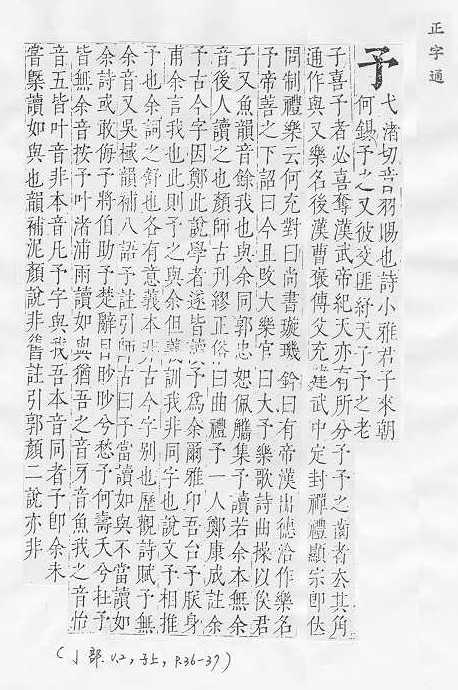 正字通
予
弋渚切音羽賜也詩小雅君子來朝
何錫予之又彼交匪紓天子予之老
子喜予者必喜奪漢武帝紀天亦有所分予予之齒者去其角
通作與又樂名後漢曹褒傳父充建武中定封禪禮顯宗即位
問制禮樂云何充對曰尚書璇璣鈐曰有帝漢出德洽作樂名
予帝善之下詔曰今且改大樂官曰大予樂歌詩曲操以俟君
子又魚韻音餘我也與余同郭忠恕佩觿集予讀若余本無余
音後人讀之也顏師古刊繆正俗曰曲禮予一人鄭康成註余
予古今字因鄭此說學者遂皆讀予為余爾雅卬吾台予朕身
甫余言我也此則予之與余但義訓我非同字也說文予相推
予也余詞之舒也各有意義本非古今字別也歷觀詩賦予無
余音又吳棫韻補八語予註引師古曰予當讀如與不當讀如
余詩或敢侮予將伯助予楚辭目眇眇兮愁予何壽夭兮在予
皆無余音按予叶渚浦雨讀如與猶吾之音牙音魚我之音怡
音五皆叶音非本音凡予字與我吾本音同者予即余未
嘗槩讀如與也韻補泥顏說非舊註引郭顏二說亦非
(亅部.V.2,子上,P.36-37)